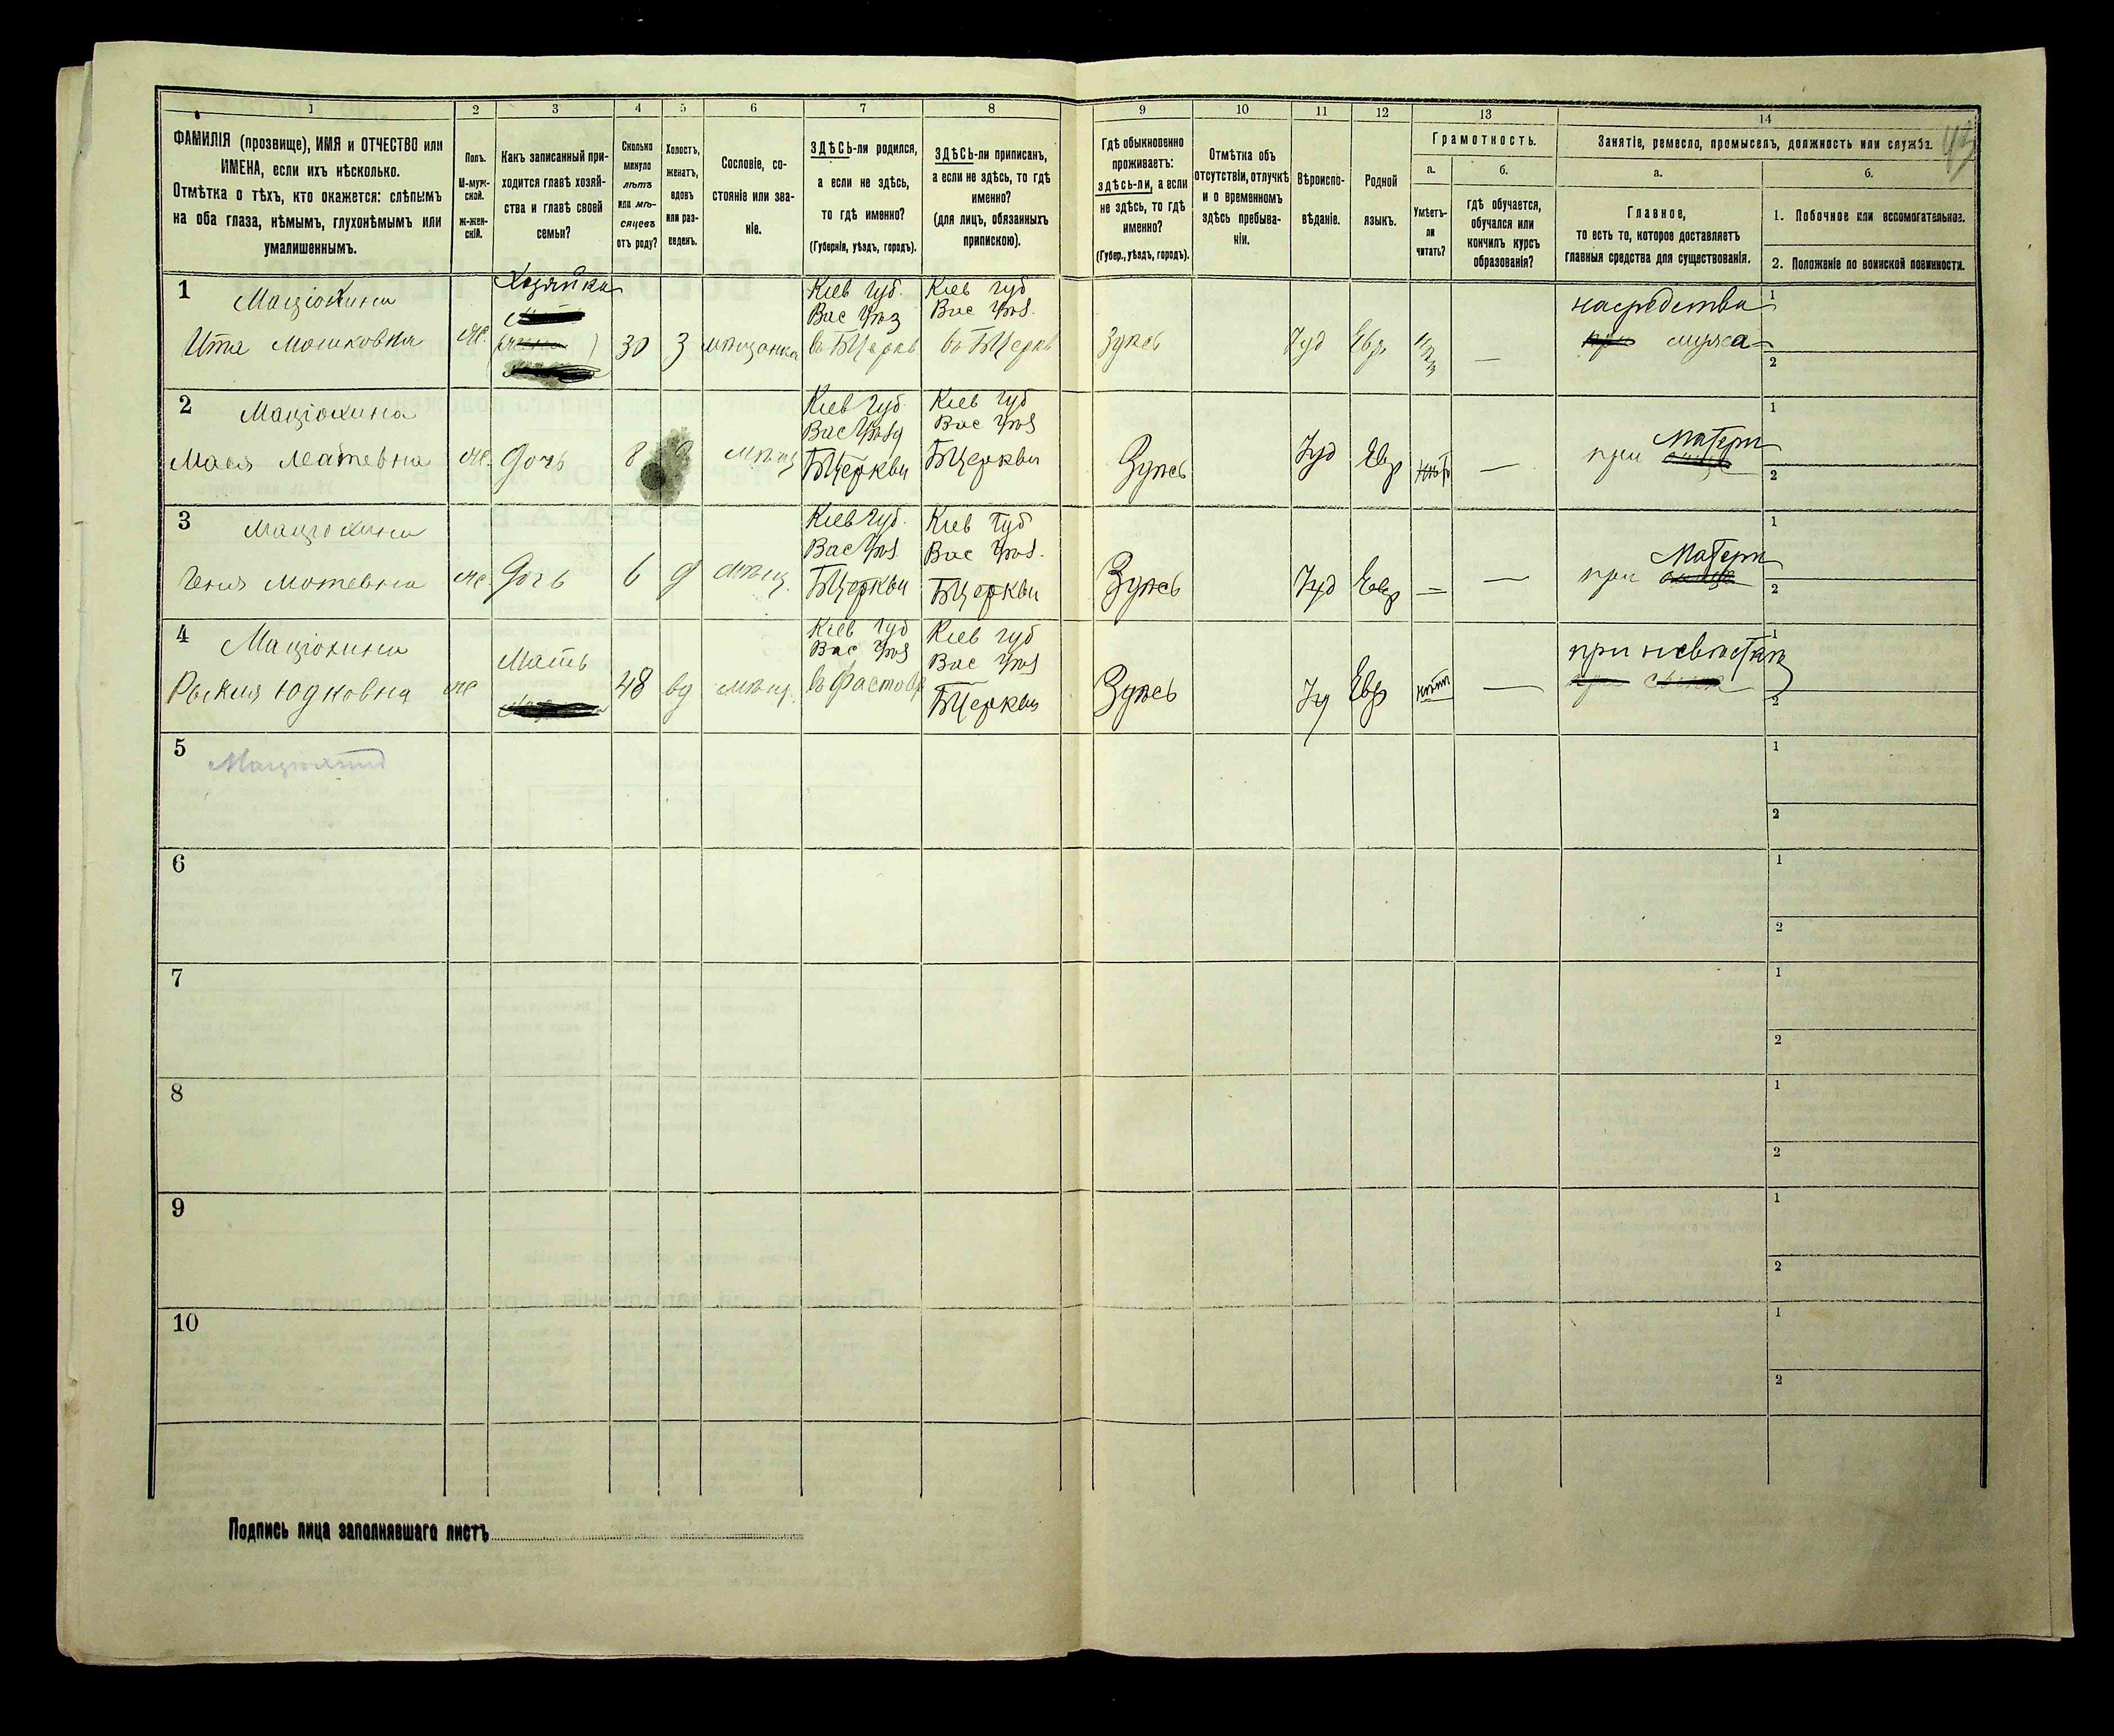 1
ФАМИЛІЯ (прозвище), ИМЯ и ОТЧЕСТВО или
ИМЕНА, если ихъ нѣсколько.
Отмѣтка о тѣхъ, кто окажется: слѣпымъ
на оба глаза, нѣмымъ, глухонѣмымъ или
умалишеннымъ.
2
Полъ.
М-муж-
ской.
ж-жен-
скій.
3
Какъ записанный при-
ходится главѣ хозяй-
ства и главѣ своей
семьи?
4
Сколько
минуло
лѣтъ
или мѣ-
сяцевъ
отъ роду?
5
Холостъ,
женатъ,
вдовъ
или раз-
веденъ.
6
Сословіе, со-
стояніе или зва-
ніе.
7
ЗДѢСЬ-ли родился,
а если не здѣсь,
то гдѣ именно?
(Губернія, уѣздъ, городъ).
8
ЗДѢСЬ-ли приписанъ,
а если не здѣсь, то гдѣ
именно?
(для лицъ, обязанныхъ
припискою).
9
Гдѣ обыкновенно
проживаетъ:
здѣсь-ли, а если
не здѣсь, то гдѣ
именно?
(Губер., уѣздъ, городъ).
10
Отмѣтка объ
отсутствіи, отлучкѣ
и о временномъ
здѣсь пребыва-
ніи.
11
Вѣроиспо-
вѣданіе.
12
Родной
языкъ.
13
Грамотность.
а.
Умѣетъ-
ли
читать?
б.
гдѣ обучается,
обучался или
кончилъ курсъ
образованія?
14
Занятіе, ремесло, промыселъ, должность или служба.
а.
Главное,
то есть то, которое доставляетъ
главныя средства для существованія.
б.
1. Побочное или вспомогательное.
2. Положеніе по воинской повинности.
1
Маціохина
Ита Мошковна
Хозяйка
30
З
мѣщанка
Кіев Губ.
Вас Уѣз
въ БЦеркв
Кіев Губ
Вас Уѣз.
въ БЦеркв
Здѣсь
Іуд
Евр
—
на средства
при мужа
1
2
2
Маціохина
Мотевна
Ж.
Дочь
8
мѣщ
Кіев Губ.
Вас Уѣзд
БЦеркви
Кіев Губ
Вас Уѣз
БЦеркви
Здѣсь
Іуд
Евр
—
при Матери
1
2
3
Маціохина
Геня Мотевна
Ж.
Дочь
6
д
мѣщ.
Кіев Губ.
Вас Уѣз.
БЦеркви
Кіев Губ
Вас Уѣз.
БЦеркви
Здѣсь
Іуд
Евр
—
—
при Матери
1
2
4
Маціохина
Юдковна
Ж
Мать
48
вд
мѣщ.
Кіев Губ
Вас Уѣз
въ Фастовѣ
Кіев Губ
Вас Уѣз
БЦеркви
Здѣсь
Іуд
Евр
нѣтъ
—
при невѣсткѣ
1
2
5
Маціохинъ
1
2
6
1
2
7
1
2
8
1
2
9
1
2
10
1
2
Подпись лица заполнявшаго листъ